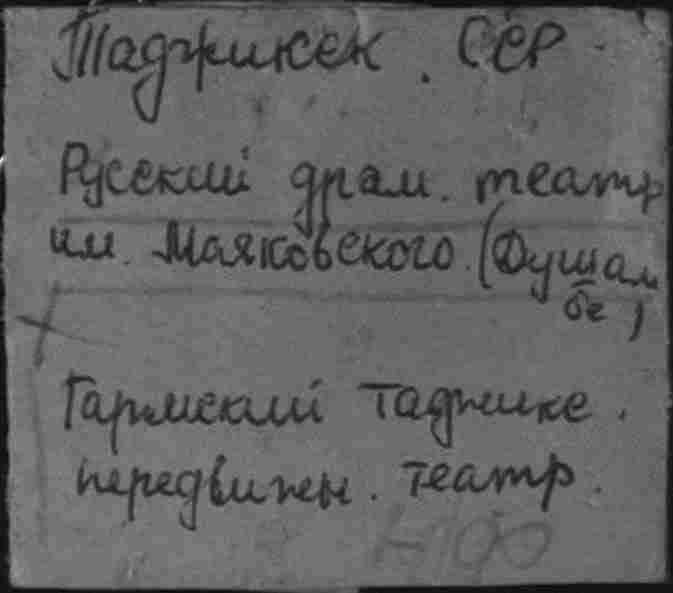 Таджикск. ССР
Русский драм. театр
им. Маяковского. (Душам
бе)
Гармский таджикс.
передвижн. театр.